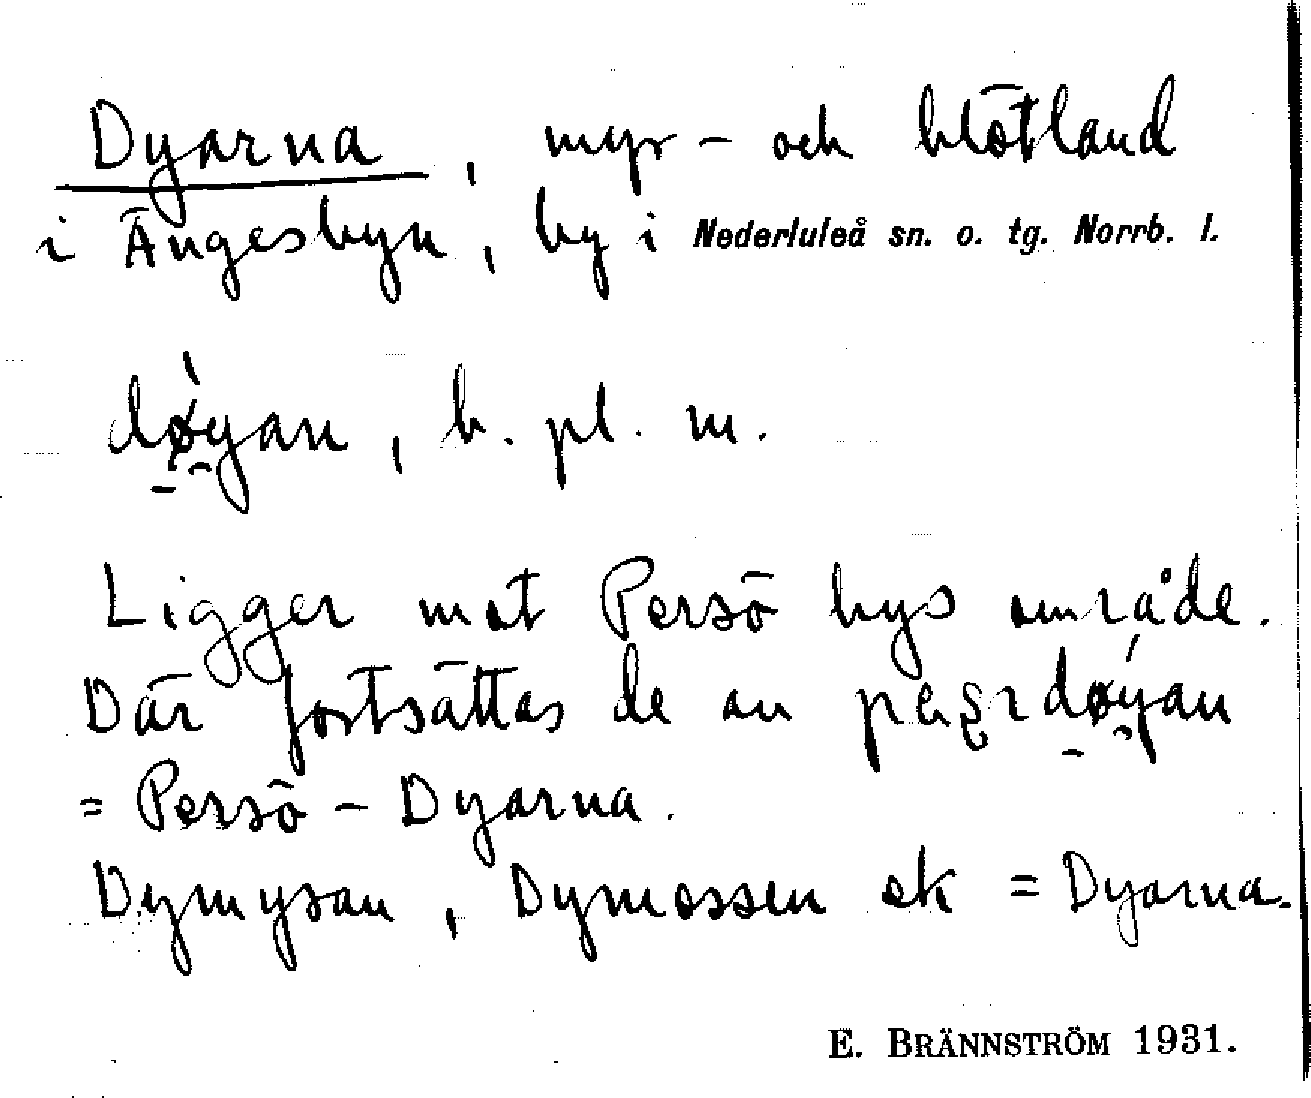 Dyarna, myr- och blötland
i Ängesbyn, by i Nederluleå sn. o. tg. Norrb. l.
døyan, b. pl. m.
Ligger mot Persö bys område.
Där fortsättas de av
= Persö-Dyarna.
Dymyran, Dymossen ek = Dyarna.
E. BRÄNNSTRÖM 1931.